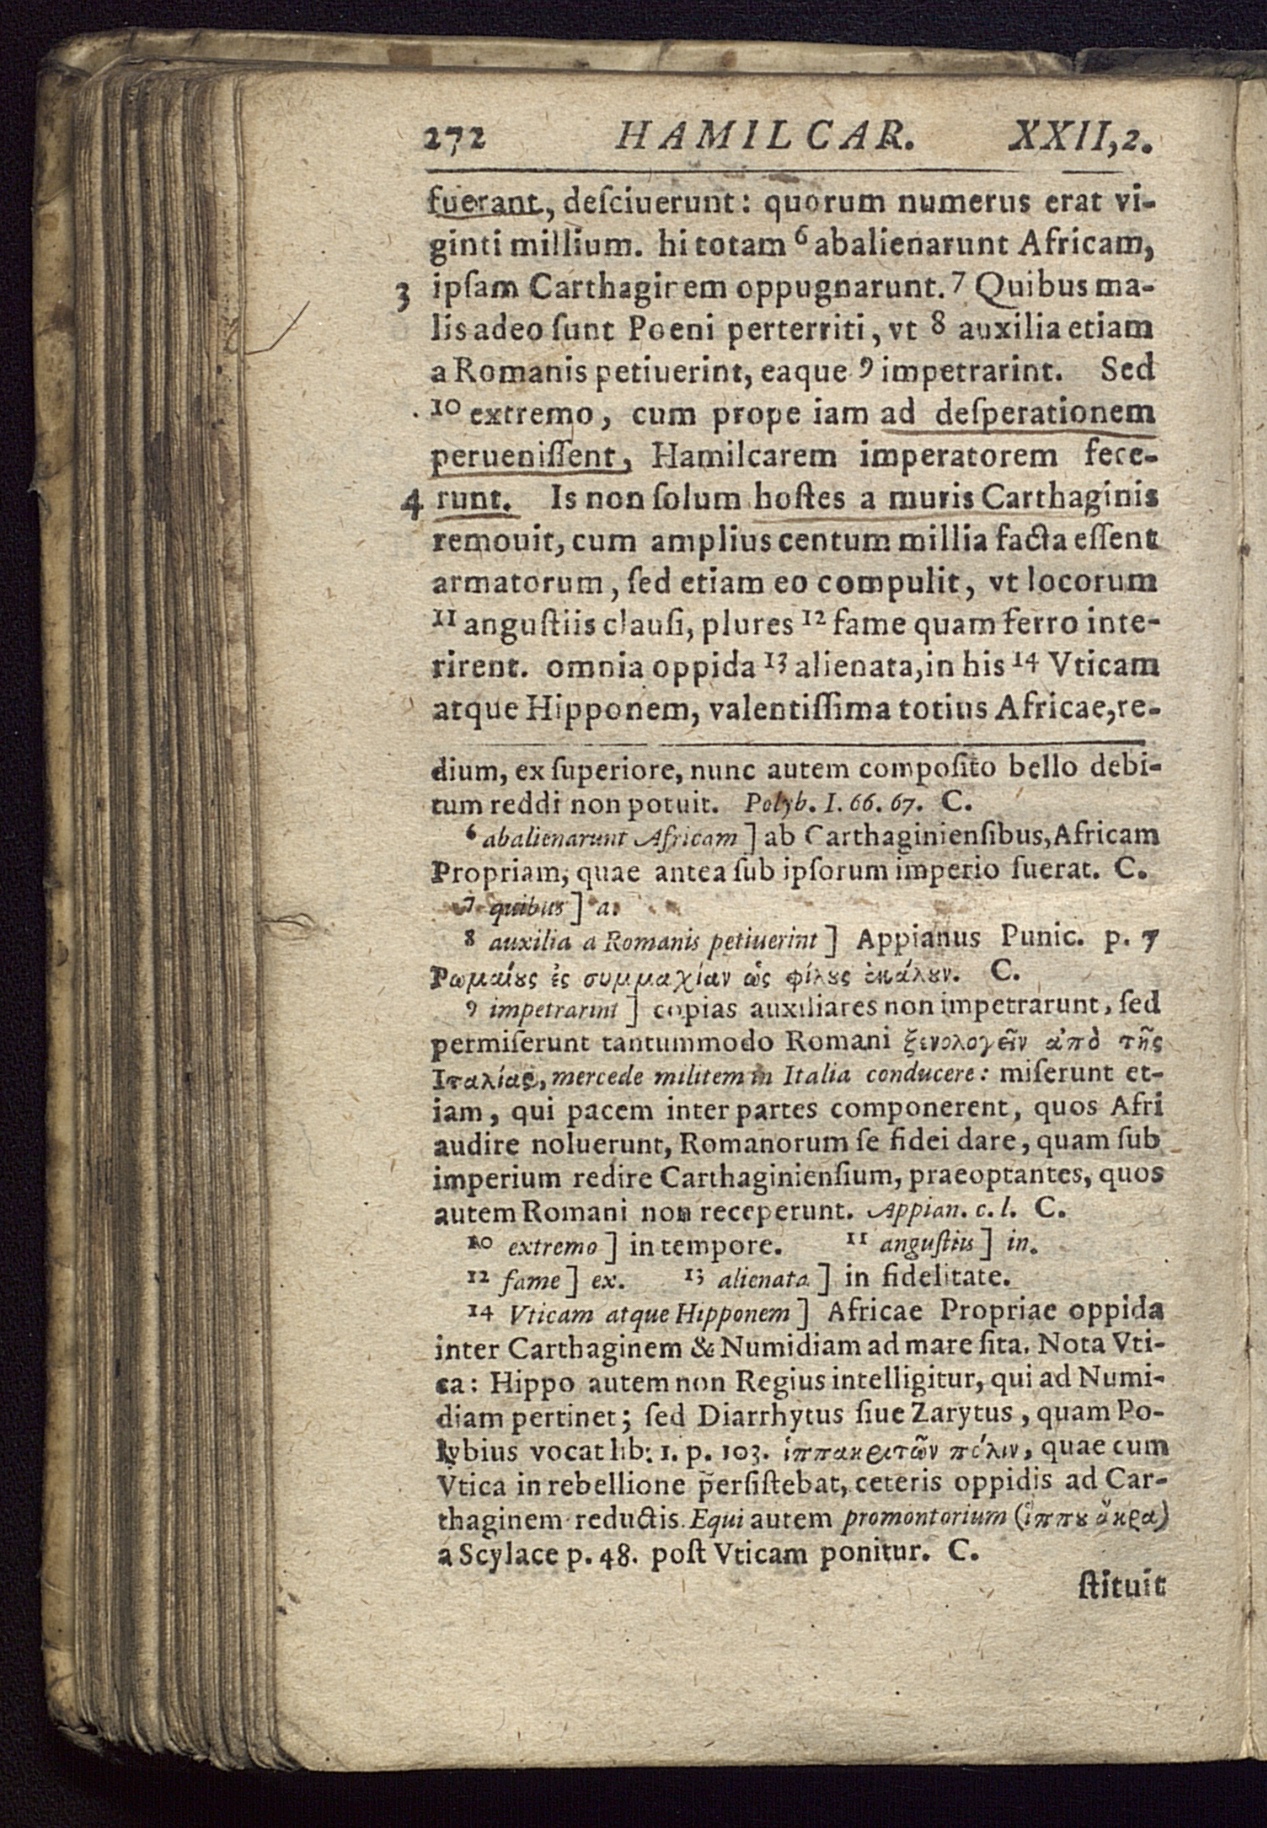 272 HAMILCAR. XXII,2.
fuerant, deſciuerunt: quorum numerus erat vi-
ginti millium. hi totam 6 abalienarunt Africam,
3 ipſam Carthaginem oppugnarunt. 7 Quibus ma-
lis adeo ſunt Poeni perterriti, vt 8 auxilia etiam
a Romanis petiuerint, eaque 9 impetrarint. Sed
10 extremo, cum prope iam ad deſperationem
perueniſſent, Hamilcarem imperatorem fece-
4 runt. Is non ſolum hoſtes a muris Carthaginis
remouit, cum amplius centum millia facta eſſent
armatorum, ſed etiam eo compulit, vt locorum
11 anguſtiis clauſi, plures 12 fame quam ferro inte-
rirent. omnia oppida 13 alienata, in his 14 Vticam
atque Hipponem, valentiſſima totius Africae, re-
dium, ex ſuperiore, nunc autem compoſito bello debi-
tum reddi non potuit. Polyb. I. 66. 67. C.
6 abalienarunt Africam] ab Carthaginienſibus, Africam
Propriam, quae antea ſub ipſorum imperio fuerat. C.
7 quibus] a.
8 auxilia a Romanis petiuerint] Appianus Punic. p. 7
Ρωμαίȣς ἐς συμμαχίαν ὡς φίλȣς ἐκάλȣν. C.
9 impetrarint] copias auxiliares non impetrarunt, ſed
permiſerunt tantummodo Romani ξενολογεῖν ἀπὸ τῆς
Ιταλίας, mercede militem in Italia conducere: miſerunt et-
iam, qui pacem inter partes componerent, quos Afri
audire noluerunt, Romanorum ſe fidei dare, quam ſub
imperium redire Carthaginienſium, praeoptantes, quos
autem Romani non receperunt. Appian. c. l. C.
10 extremo] in tempore. 11 anguſtiis] in.
12 fame] ex. 13 alienata] in fidelitate.
14 Vticam atque Hipponem] Africae Propriae oppida
inter Carthaginem & Numidiam ad mare ſita. Nota Vti-
ca: Hippo autem non Regius intelligitur, qui ad Numi-
diam pertinet; ſed Diarrhytus ſiue Zarytus, quam Po-
lybius vocat lib: 1. p. 103. ἱππακριτῶν πόλιν, quae cum
Vtica in rebellione perſiſtebat, ceteris oppidis ad Car-
thaginem reductis. Equi autem promontorium (ἵππȣ ἄκρα)
a Scylace p. 48. poſt Vticam ponitur. C.
ſtituit